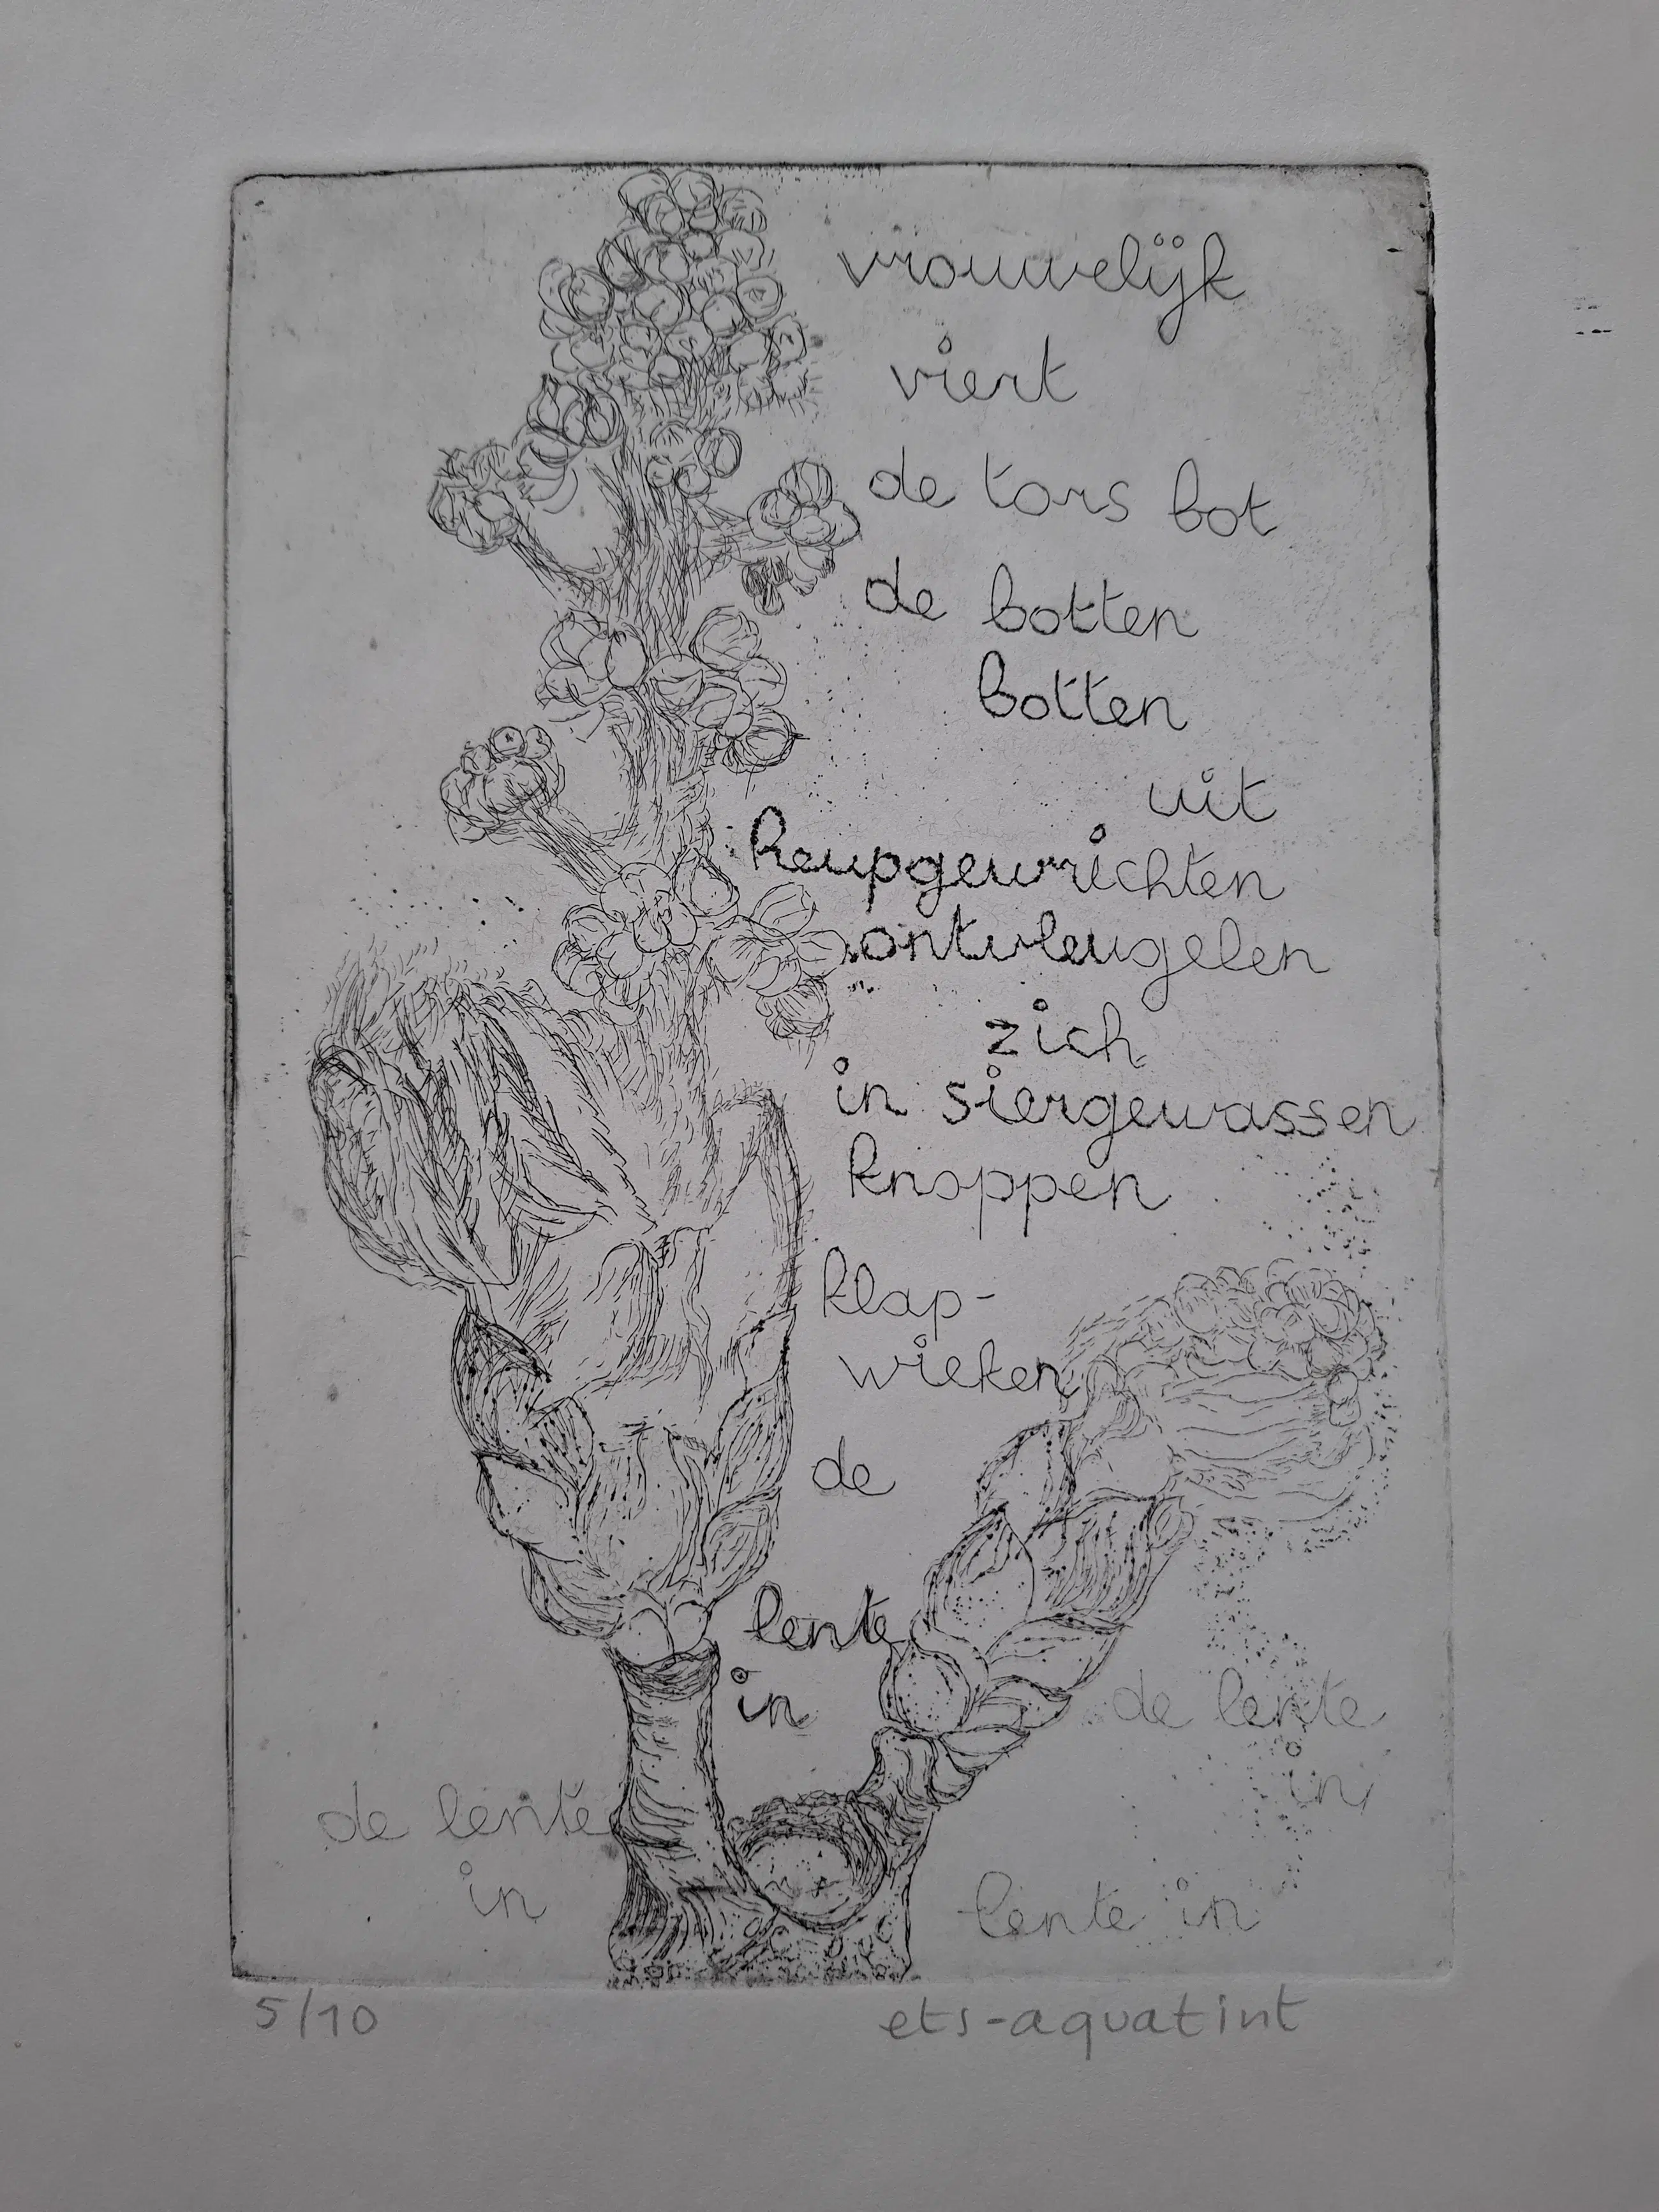 vrouwelijk
viert
de tors bot
de botten
botten
uit
heupgewrichten
ontvleugelen
zich
in siergewassen
knoppen
klap-
wieken
de
lente
in
de lente
in
de lente
in
lente in
5/10
ets-aquatint